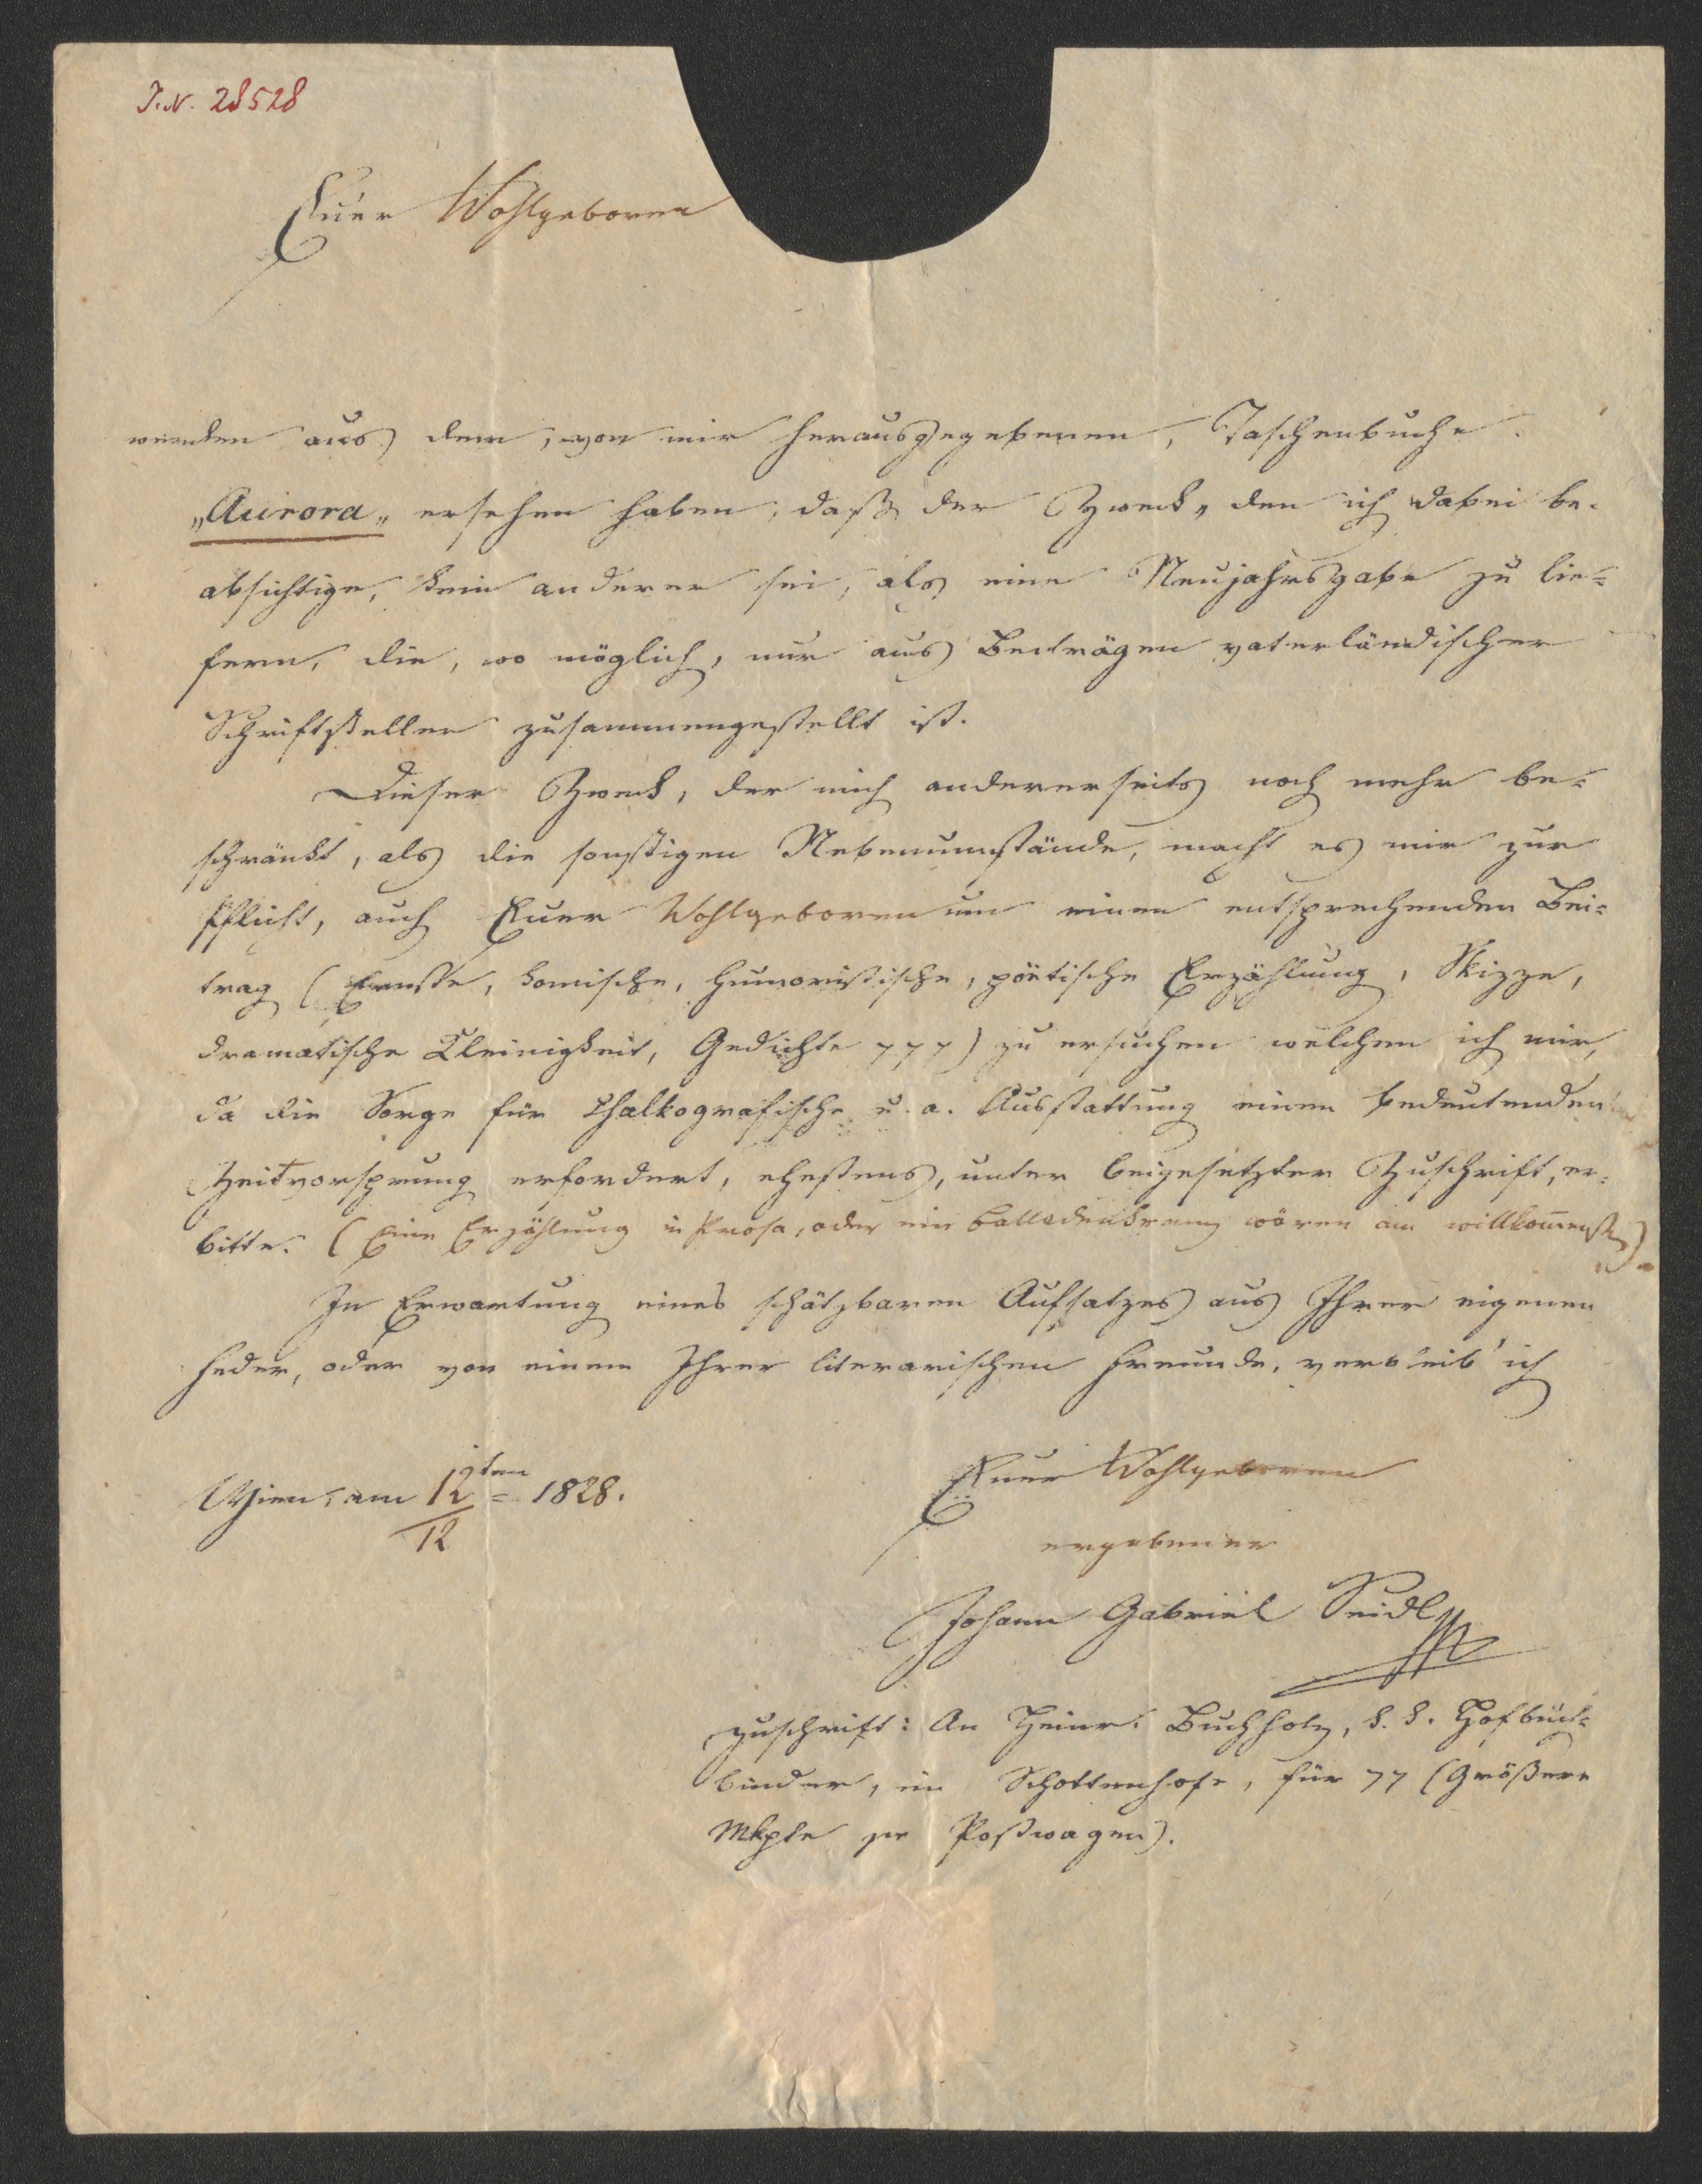 I.N. 28528
Euer Wohlgeboren
werden aus dem, von mir herausgegebenen, Taschenbuche
„Aurora„ ersehen haben, daß der Zweck, den ich dabei be-
absichtige, kein anderer sei, als eine Neujahrsgabe zu lie-
fern, die, wo möglich, nur aus Beiträgen vaterländischer
Schriftsteller zusammengestellt ist.
Dieser Zweck, der mich andererseits noch mehr be-
schränkt, als die sonstigen Nebenumstände, macht es mir zur
Pflicht, auch Euer Wohlgeboren um einen entsprechenden Bei-
trag (Ernste, komische, humoristische, poëtische Erzählung, Skizze,
dramatische Kleinigkeit, Gedichte ppp) zu ersuchen welchen ich mir,
da die Sorge für chalkografische u. a. Ausstattung einen bedeutenden
Zeitvorsprung erfordert, ehestens, unter beigesetzter Zuschrift, er-
bitte. (Eine Erzählung in Prosa, oder ein Balladenkranz wären am willkom̅enst)
In Erwartung eines schätzbaren Aufsatzes aus Ihrer eigenen
Feder, oder von einem Ihrer literarischen Freunde, verbleib' ich
Euer Wohlgeboren
Wien, am 12ten/12 = 1828.
ergebener
Johann Gabriel Seidl
Zuschrift: An Heinr. Buchholz, k. k. Hofbuch-
binder, im Schottenhofe, für pp (Größere
Mspte pr Postwagen).